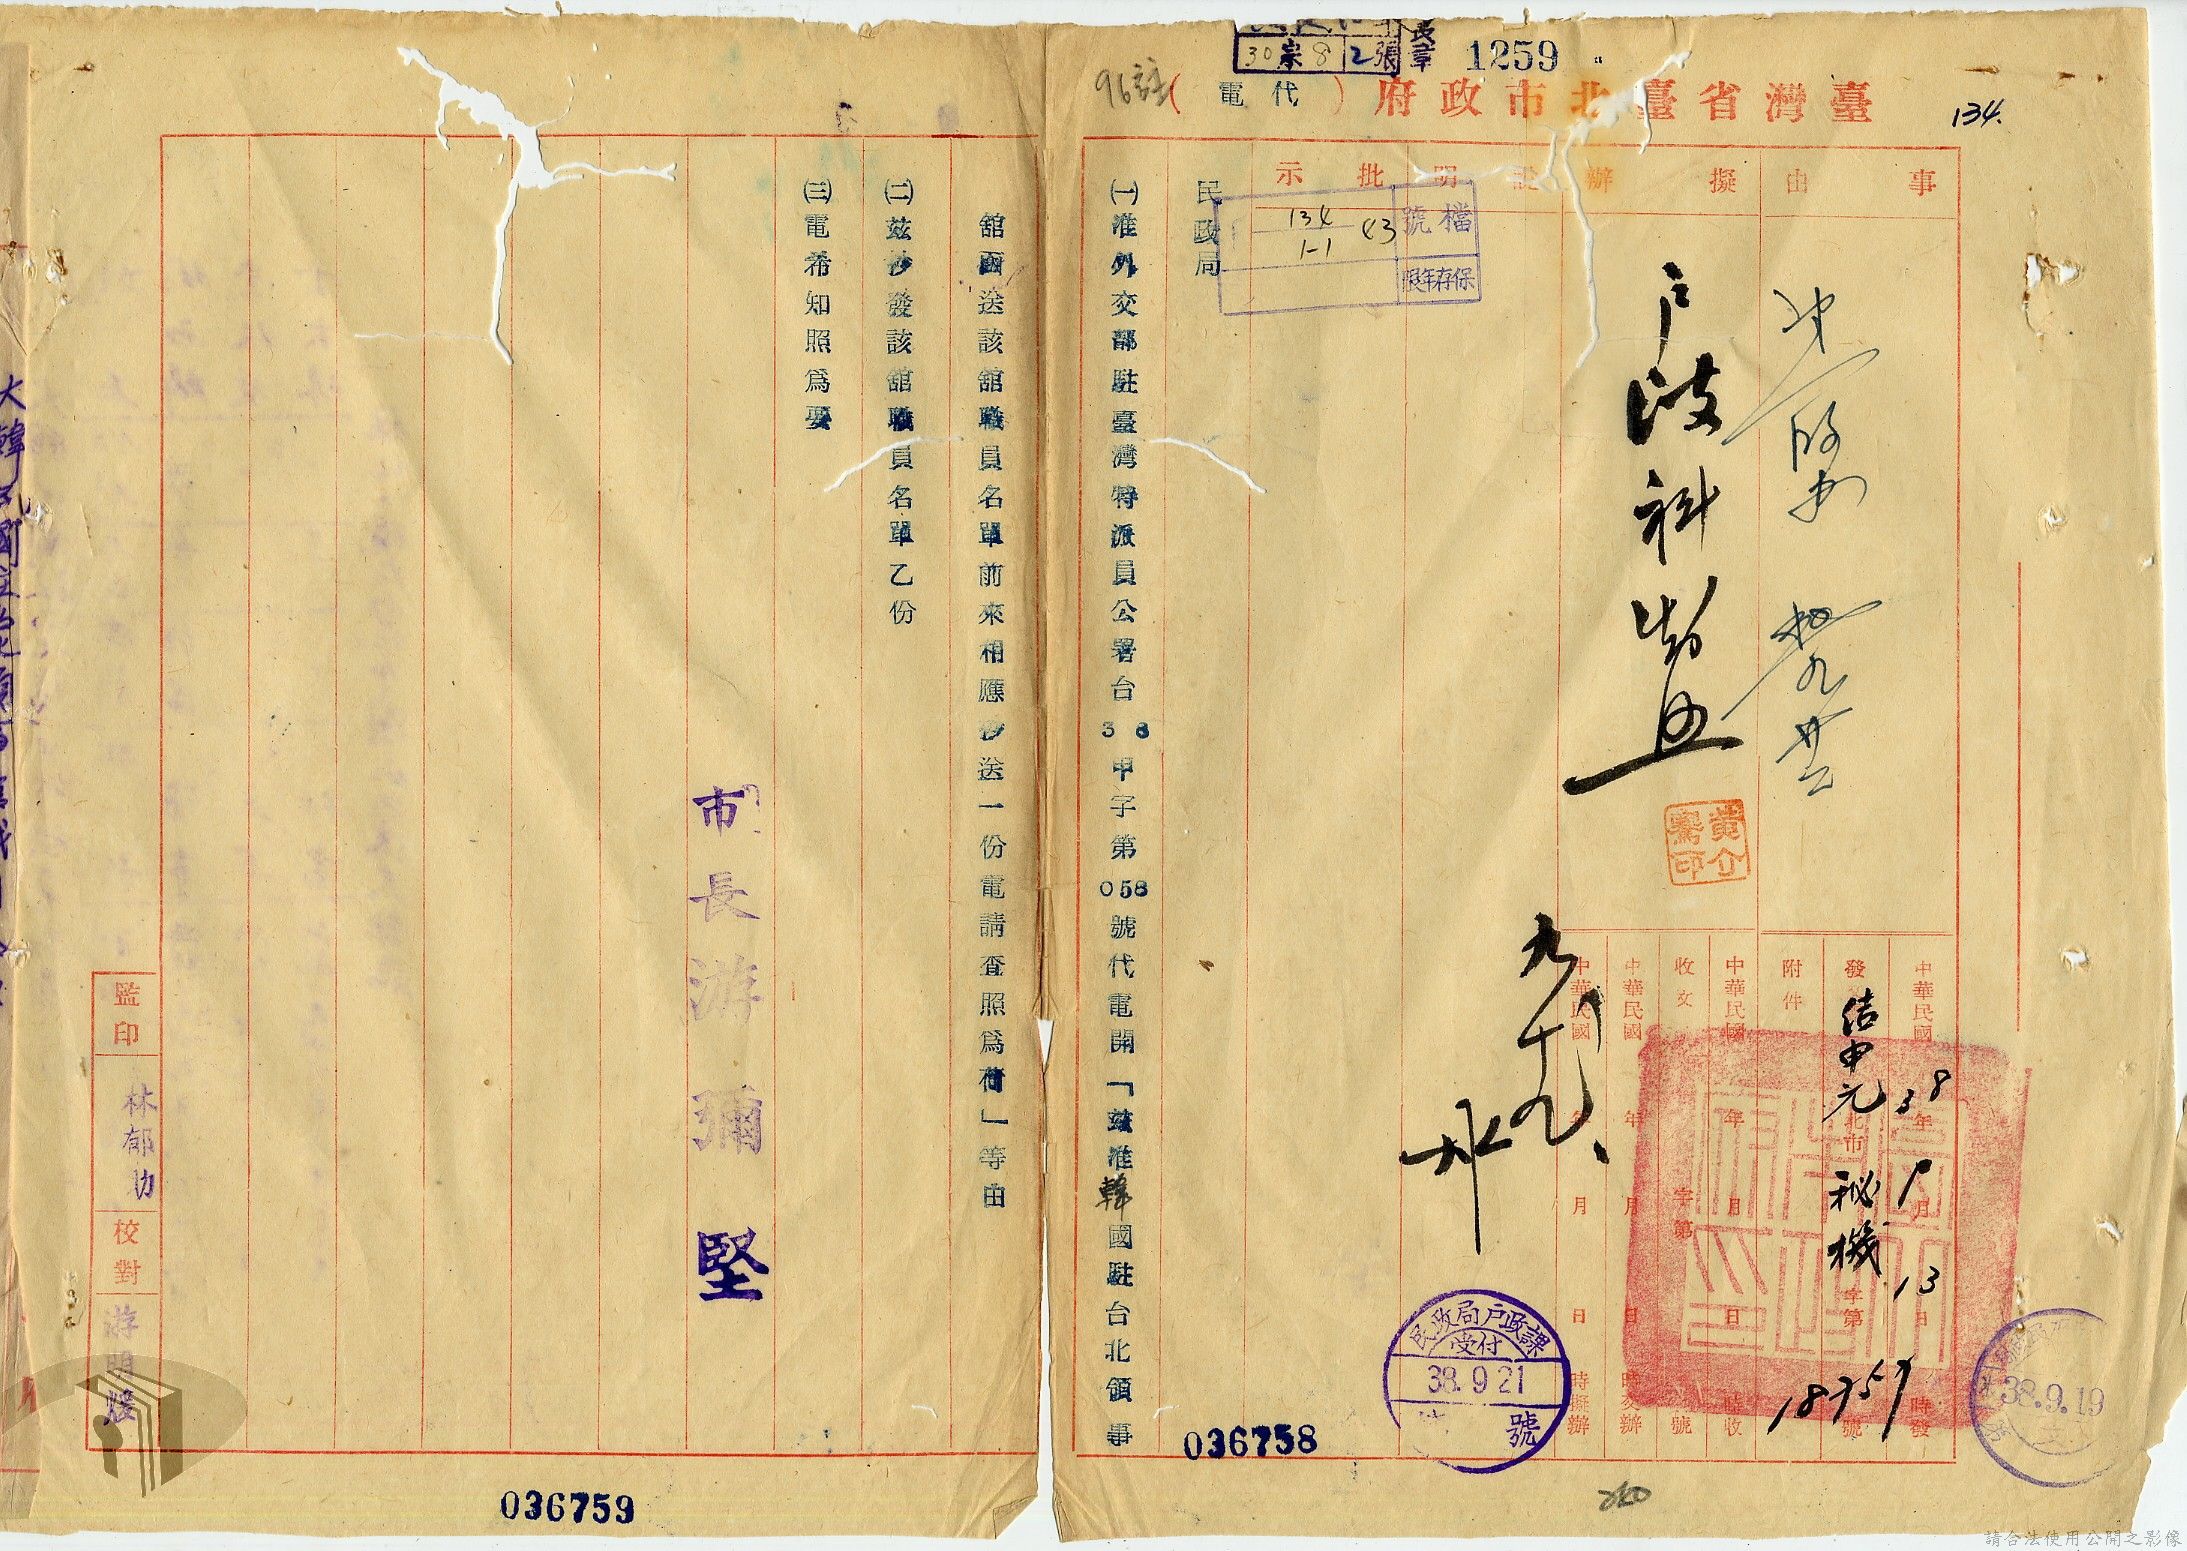 1259
30宗8 2張
長章
臺灣省臺北市政府（代電）
96註
134.
事由
擬辦
說明
批示
檔號
134
1-1
43
保存年限
戶政科
黃介騫印
中華民國38年9月13日 時發
發文 佳申元 北市秘機字第18757號
附件
中華民國 年 月 日 時收
收文 字第 號
中華民國 年 月 日 時交辦
中華民國 年 月 日 時擬辦
九十九
民政局
㈠准外交部駐臺灣特派員公署台38甲字第058號代電開「茲准韓國駐台北領事
舘函送該舘職員名單前來相應抄送一份電請查照爲荷」等由
㈡茲抄發該舘職員名單乙份
㈢電希知照爲要
市長游彌堅
監印
林郁功
校對
游明媛
民政局戶政課
受付
38.9.21
號
38.9.19
036758
036759
請合法使用公開之影像